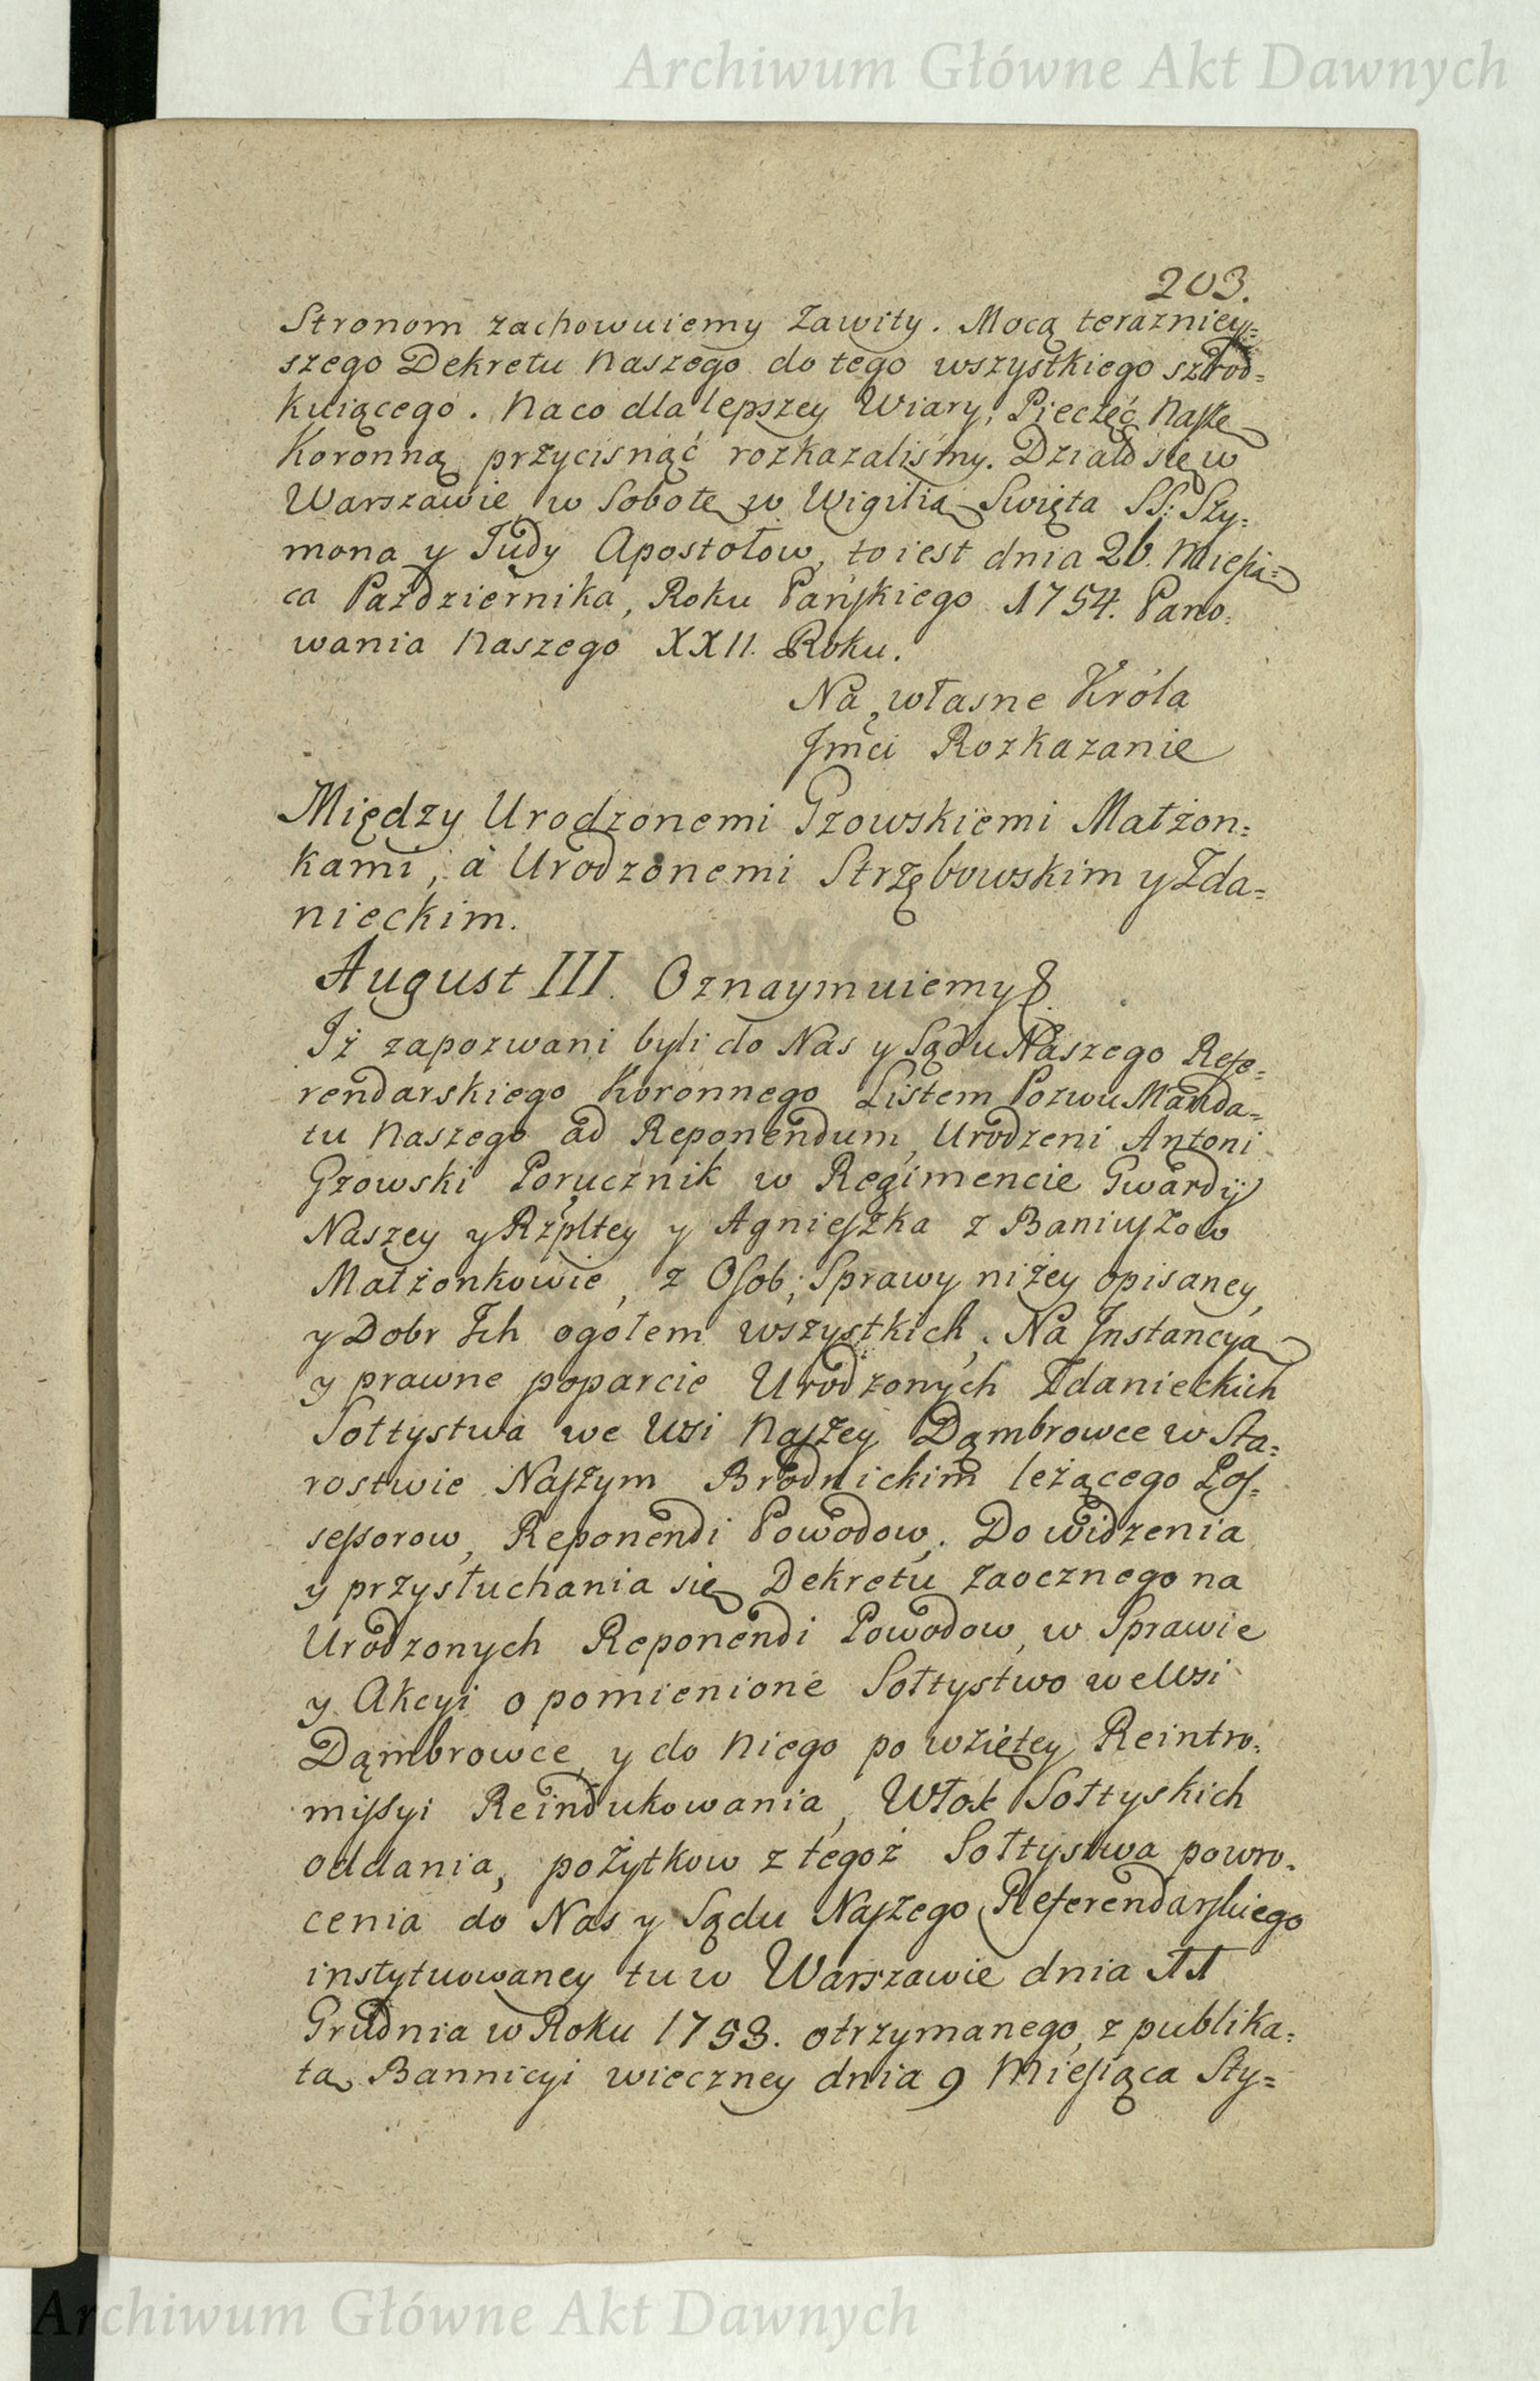 Archiwum Główne Akt Dawnych
203.
Stronom zachowuiemy Zawity. Mocą terazniey=
szego Dekretu Naszego do tego wszystkiego szrod=
kuiącego. Naco dla lepszey Wiary, Pieczęć Naszę
Koronną przycisnąć rozkazalismy. Działo się w
Warszawie w Sobotę w Wigilią Swięta SS: Szy=
mona y Judy Apostołow, to iest dnia 26. Miesią=
ca Pazdziernika, Roku Pańskiego 1754. Pano=
wania Naszego XXII. Roku.
Na własne Króla
Jmci Rozkazanie
Między Urodzonemi Gzowskiemi Małżon=
kami, à Urodzonemi Strzębowskim y Zda=
nieckim.
August III. Oznaymuiemy
Iż zapozwani byli do Nas y Sądu Naszego Refe=
rendarskiego Koronnego Listem Pozwu Manda=
tu Naszego ad Reponendum, Urodzeni Antoni
Gzowski Porucznik w Regimencie Gwardÿ
Naszey y Rzpltey y Agnieszka z Baniuszow
Małżonkowie, z Osob, Sprawy niżey opisaney,
y Dobr Ich ogołem wszystkich, Na Instancyą
y prawne poparcie Urodzonych Zdanieckich
Sołtystwa we Wsi Naszey Dąmbrowce w Sta=
rostwie Naszym Brodnickim leżącego Pos=
sessorow, Reponendi Powodow. Do widzenia
y przysłuchania się Dekretu Zaocznego na
Urodzonych Reponendi Powodow, w Sprawie
y Akcyi o pomienione Sołtystwo we Wsi
Dąmbrowce, y do Niego po wziętey Reintro=
missyi Reindukowania, Włok Sołtyskich
oddania, pożytkow z tegoż Sołtystwa powro=
cenia do Nas y Sądu Naszego Referendarskiego
instytuowaney tu w Warszawie dnia 11
Grudnia w Roku 1753. otrzymanego, z publika=
tą Bannicyi wieczney dnia 9 Miesiąca Sty=
Archiwum Główne Akt Dawnych